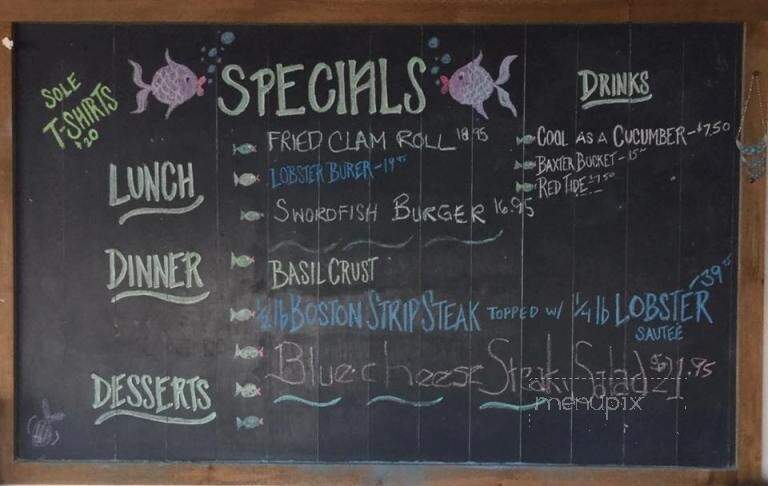 SOLE
T-SHIRTS
$20
SPECIALS
LUNCH
FRIED CLAM ROLL 18.95
LOBSTER BURER - 19
SWORDFISH BURGER 16.95
DINNER
BASIL CRUST
1/2 lb BOSTON STRIP STEAK TOPPED W/ 1/4 lb LOBSTER - 39
SAUTEÉ
Blue cheese Steak Salad $21.95
DESSERTS
DRINKS
COOL AS A CUCUMBER - $7.50
BAXTER BUCKET - 15
RED TIDE - $7.50
menupix